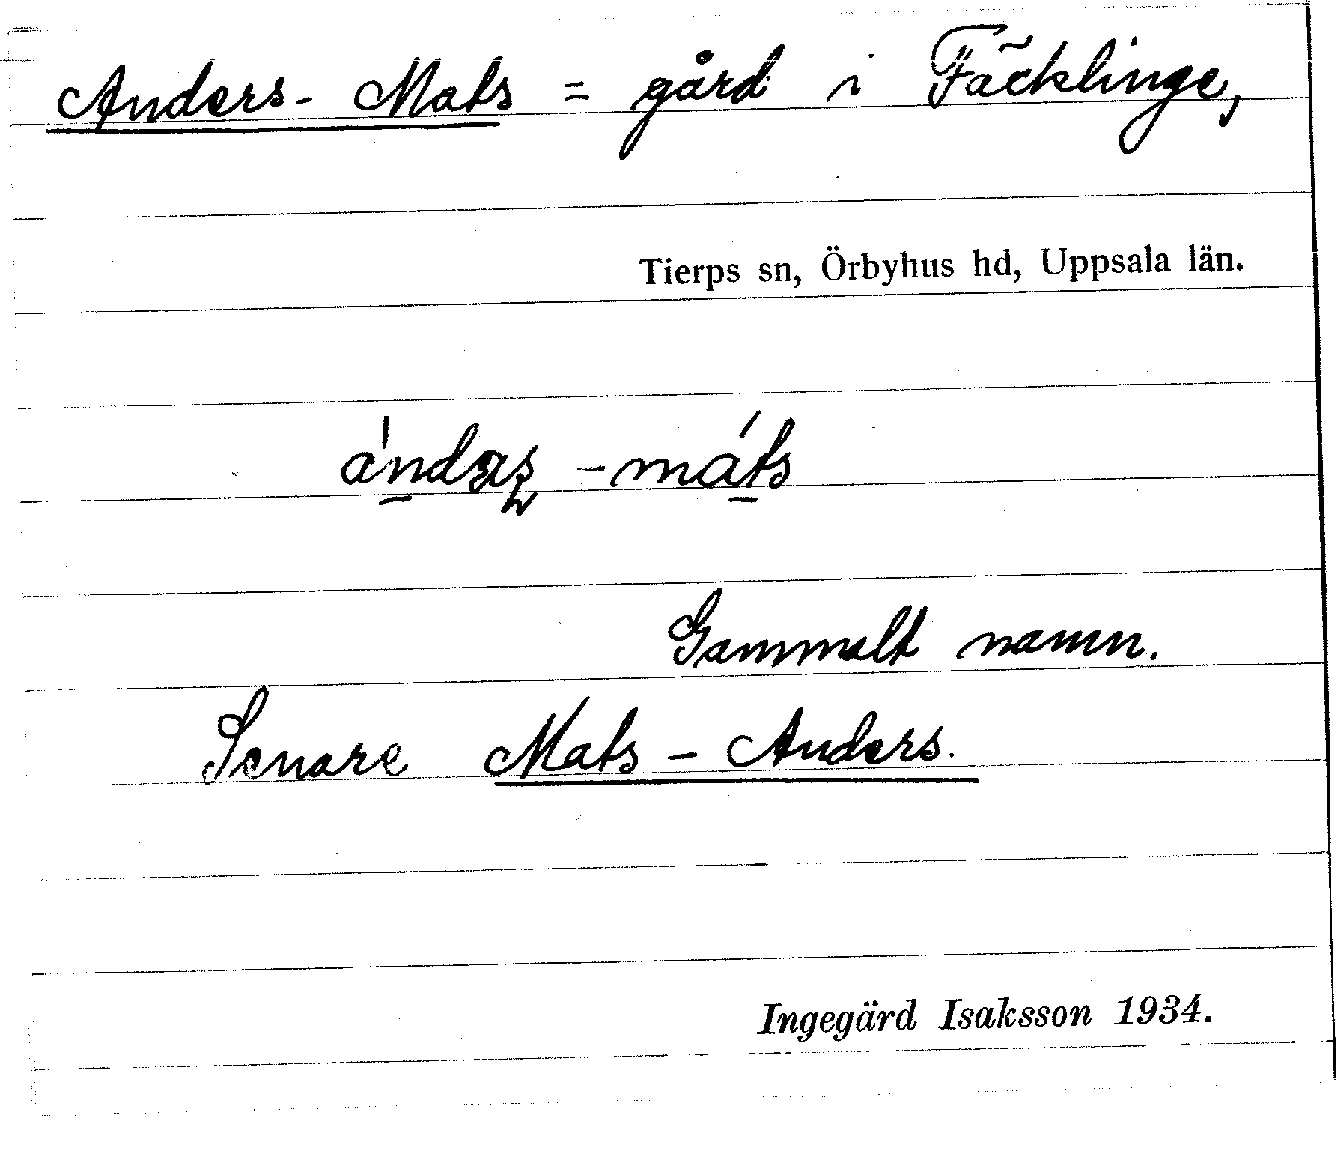 Anders-Mats = gård i Fäcklinge,
Tierps sn, Örbyhus hd, Uppsala län.
-máts
Gammalt namn.
Senare Mats-Anders.
Ingegärd Isaksson 1934.